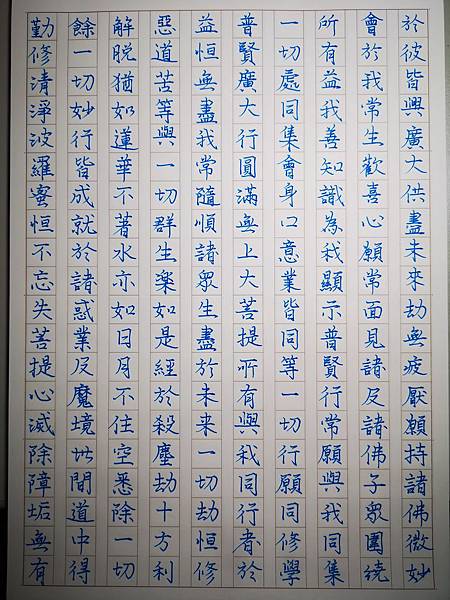 勤修清淨波羅蜜恒不忘失菩提心滅除障垢無有
餘一切妙行皆成就於諸惑業及魔境世間道中得
解脫猶如蓮華不著水亦如日月不住空悉除一切
惡道苦等與一切群生楽如是經於殺塵劫十方利
益恒無盡我常隨順諸眾生盡於未来一切劫恒修
普賢廣大行圓滿無上大菩提所有與我同行者於
一切處同集會身口意業皆同等一切行願同修學
所有益我善知識為我顯示普賢行常願與我同集
會於我常生歡喜心願常面見諸及諸佛子眾圍繞
於彼皆興廣大供盡未來劫無疲厭願持諸佛微妙